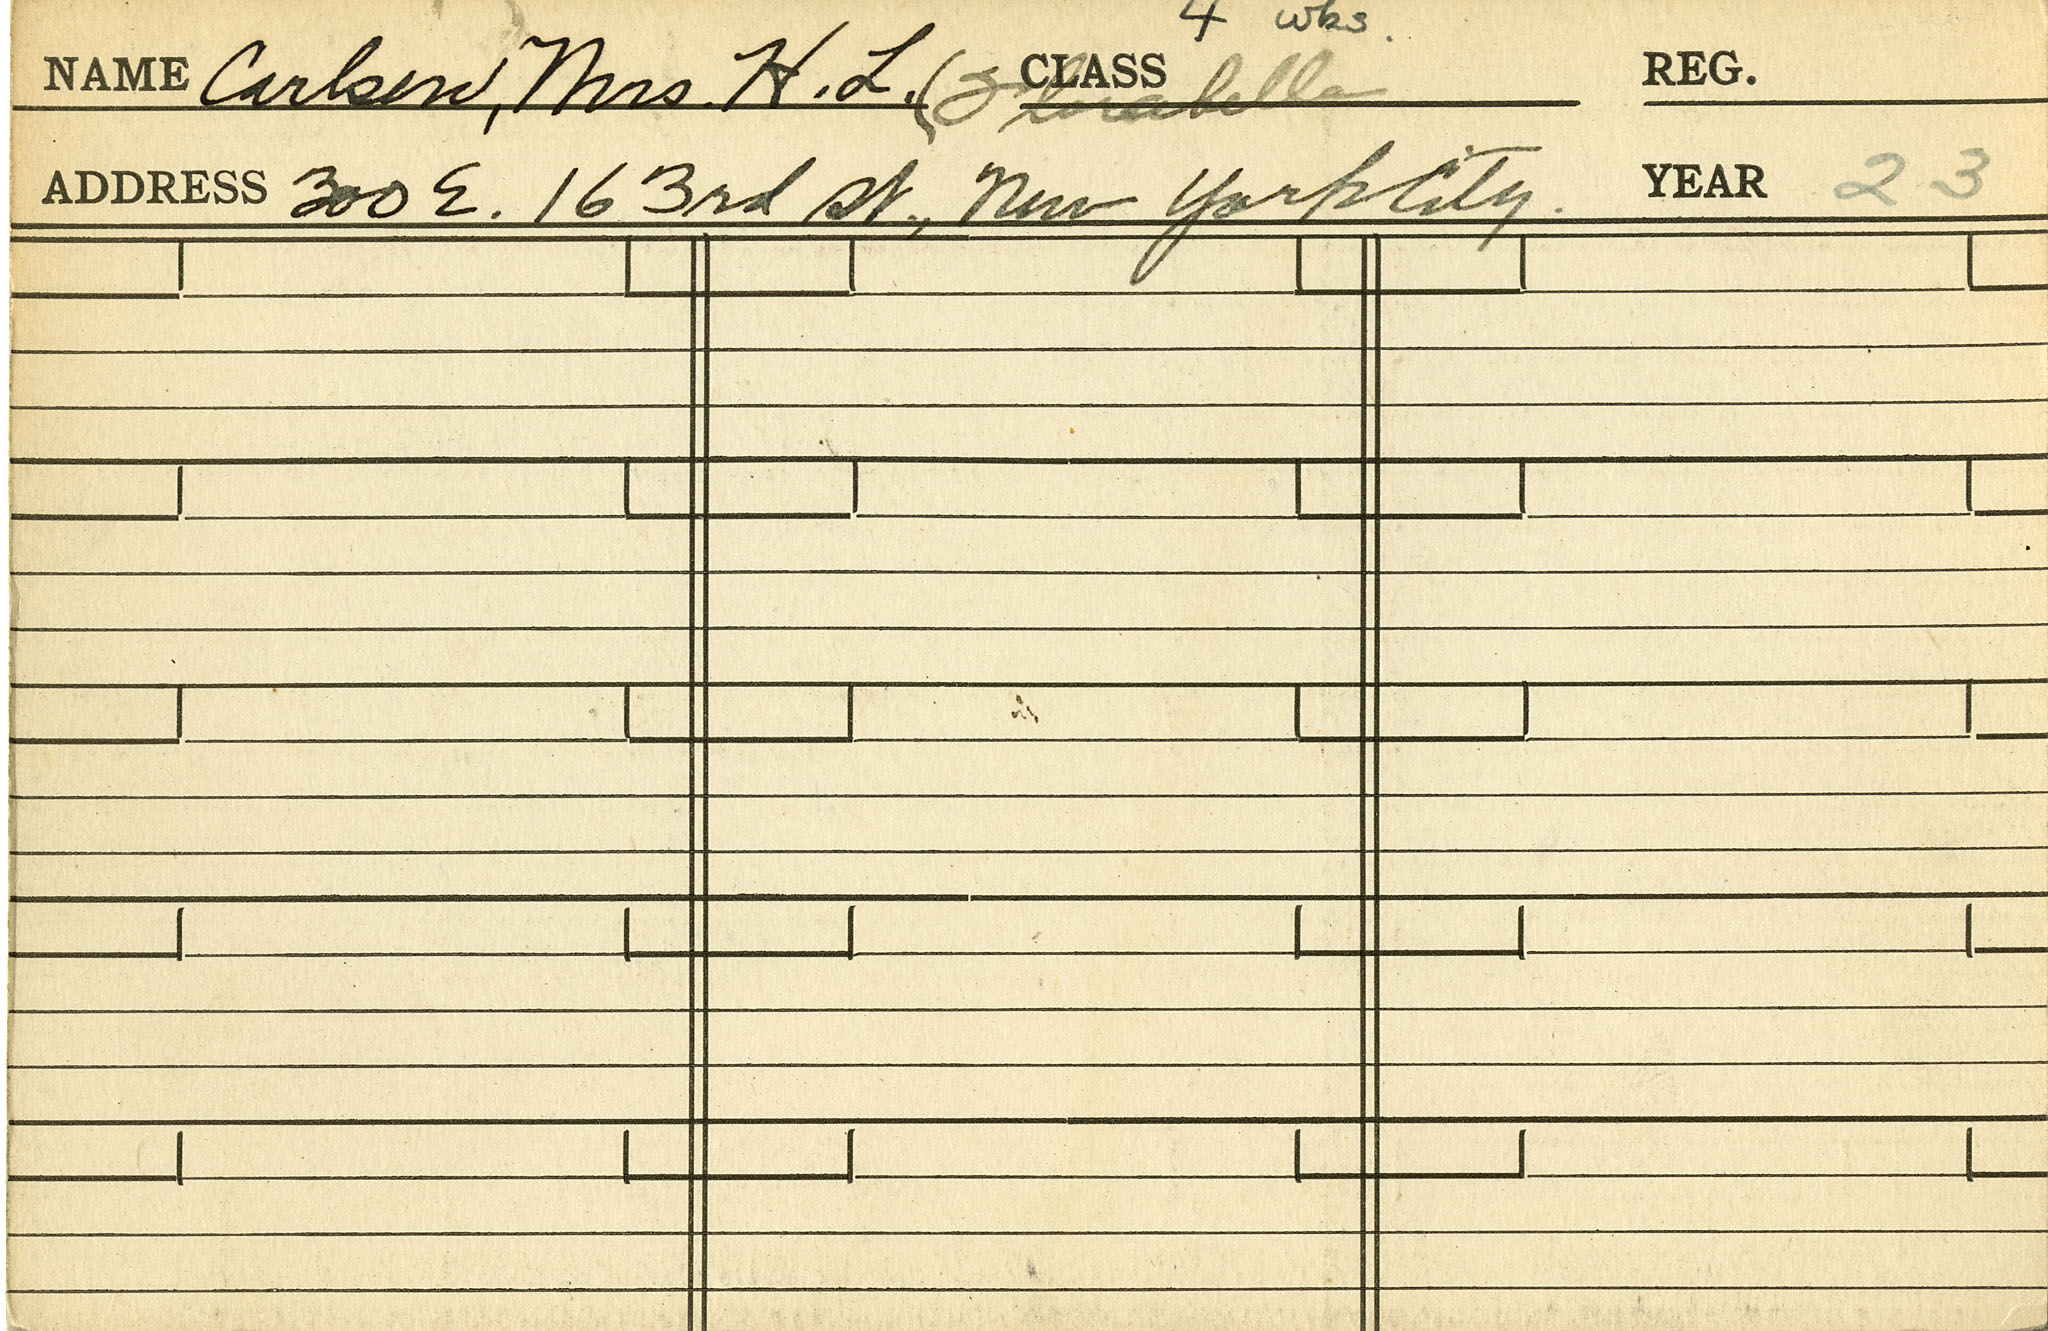 4 wks.
NAME Carlsen, Mrs. H. L. (Florabella CLASS REG.
ADDRESS 300 E. 163rd St., New York City. YEAR 23